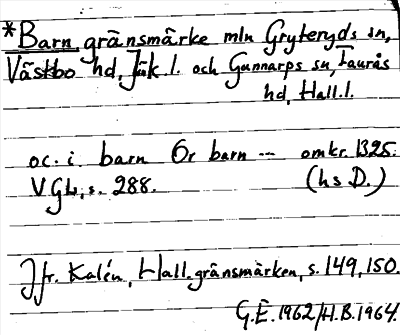 *Barn, gränsmärke mln Gryteryds sn,
Västbo hd, Jbk. l. och Gunnarps sn, Faurås
hd, Hall. l.
oc. i. barn Or barn --- omkr. 1325.
VGL, s. 288. (hs D.)
Jfr. Kalén, Hall. gränsmärken, s. 149, 150.
G.E. 1962/H.B. 1964.